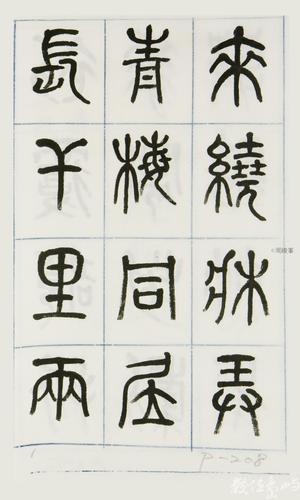 來繞牀弄
青梅同居
長干里兩
P-208